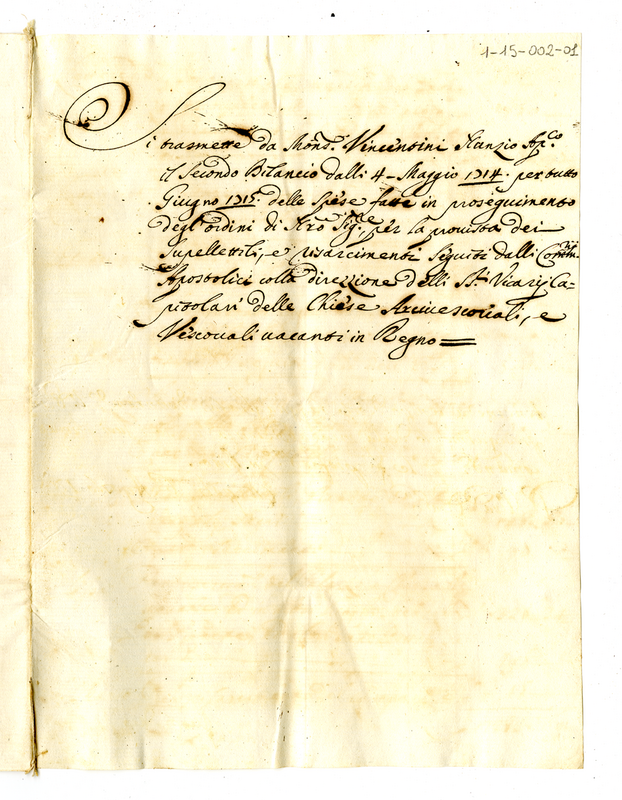 1-15-002-01
Si trasmette da Mons.r Vincentini Nunzio Ap.co
il Secondo Bilancio dalli 4 Maggio 1714. per tutto
Giugno 1715. delle spese fatte in proseguimento
degl'ordini di Nr̃o Sig.re, per la provista dei
Supellettili, e risarcimenti seguiti dalli Com̃m.rij
Apostolici colla direzzione delli SS.ri Vicarij Ca=
pitolari delle Chiese Arcivescovali, e
Vescovali vacanti in Regno =